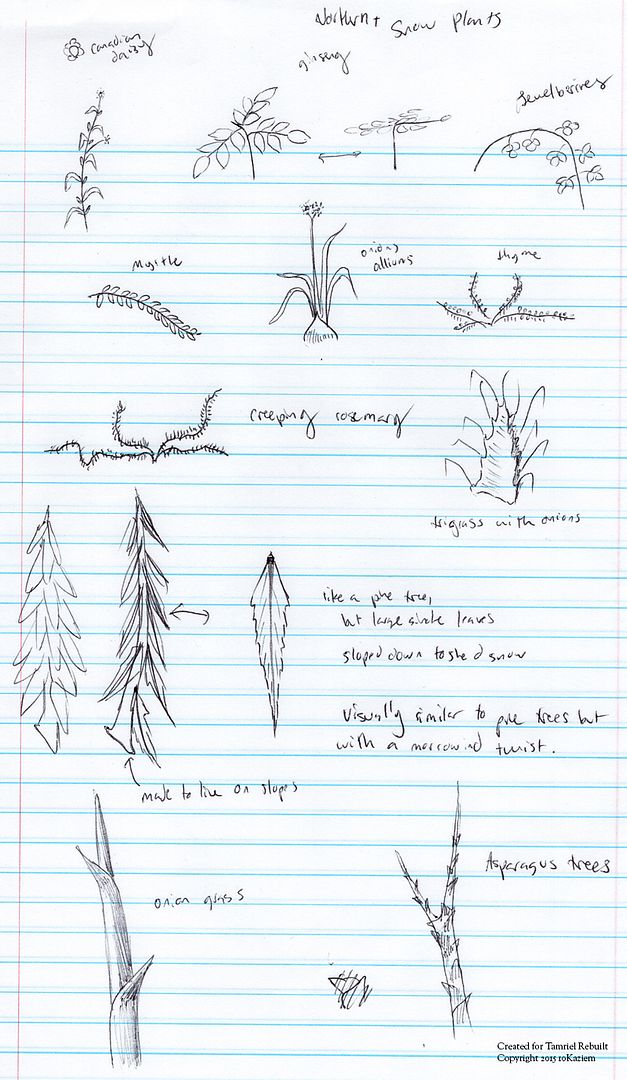 Northern + Snow Plants
canadian
daisy
ginseng
Jewelberries
Myrtle
onions
alliums
thyme
creeping rosemary
trigrass with onions
like a pine tree,
but large single leaves
sloped down to shed snow
Visually similar to pine trees but
with a morrowind twist.
made to live on slopes
onion grass
Asparagus trees
Created for Tamriel Rebuilt
Copyright 2015 10Kaziem